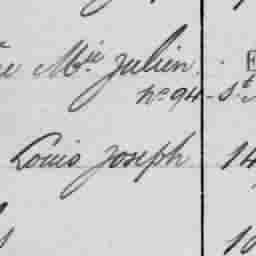 Mie Julien.
no 94 - St
Louis Joseph 14
10